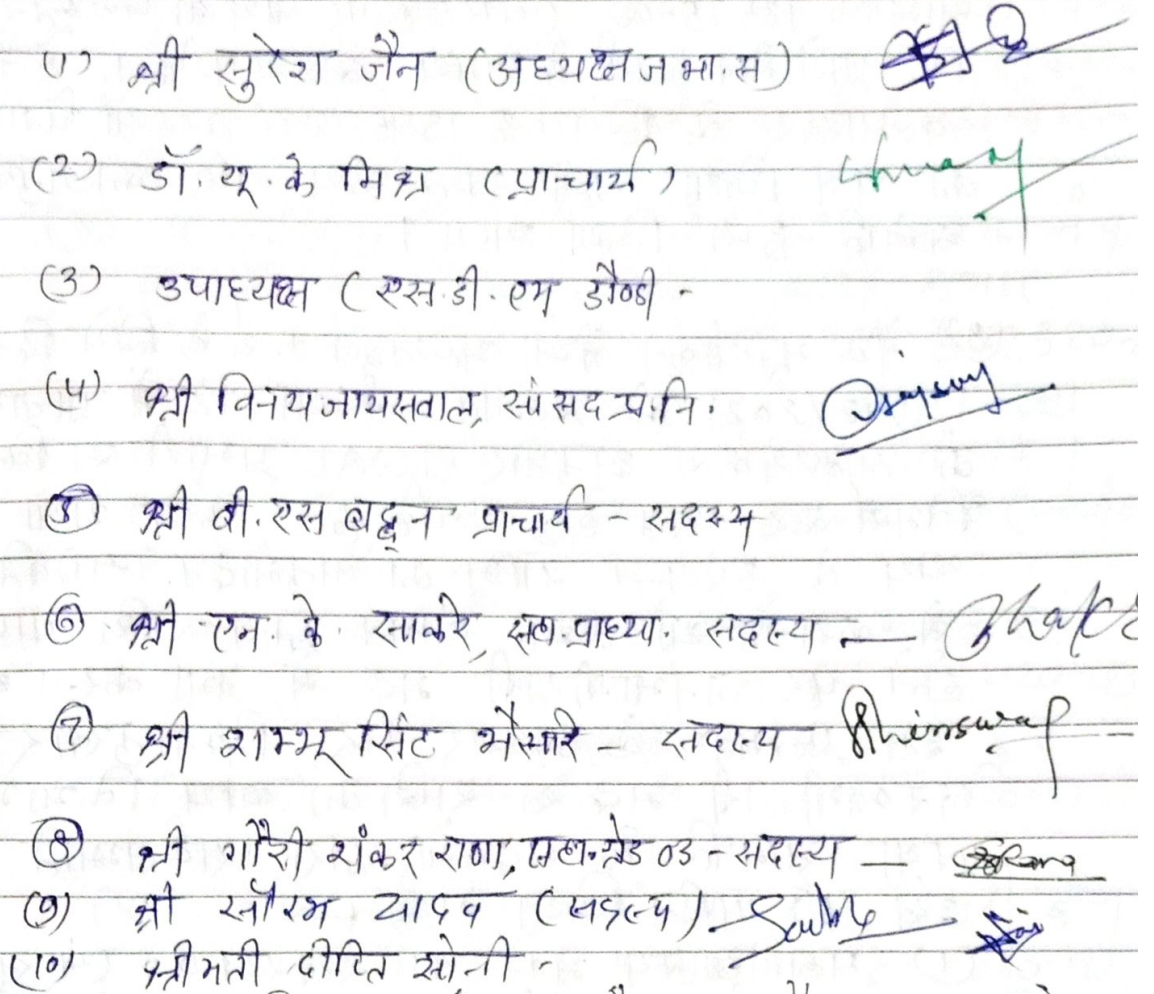 (1) श्री सुरेश जैन (अध्यक्ष ज.भा.स)
(2) डॉ. यू. के मिश्र (प्राचार्य)
(3) उपाध्यक्ष (एस.डी.एम डौण्डी -
(4) श्री विनय जायसवाल, सांसद प्र.नि.
(5) श्री बी.एस प्राचार्य - सदस्य
(6) श्री एन के. साकरे, सहा.प्राध्या. सदस्य —
(7) श्री शम्भू सिंह भैसारे - सदस्य
(8) श्री गौरी शंकर राणा, सहा.ग्रेड 03 - सदस्य —
(9) श्री सौरभ यादव (सदस्य)
(10) श्रीमती दीप्ति सोनी -